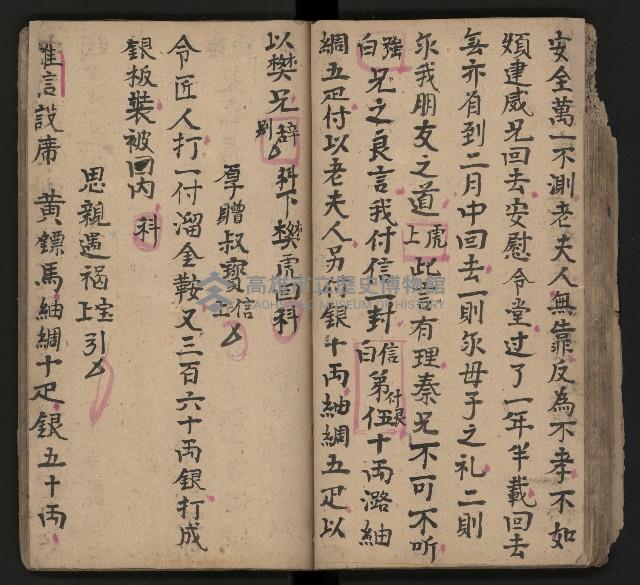 安全萬一不測老夫人無靠反為不孝不如
煩建威兄回去安慰令堂过了一年半載回去
無亦有到二月中回去一則尔母子之礼二則
尔我朋友之道 虎上 此言有理秦兄不可不听
強白 兄之良言我付信一封 信白 弟 付銀 伍十両潞紬
綢五疋付以老夫人另付銀十両紬綢五疋以
以樊兄 辞別 科下樊虎白科
厚贈叔寶 信上
令匠人打一付溜金鞍又三百六十両銀打成
銀板裝被囬内 科
思親遇禍 宝上 引
雄信設席 黃鏢馬紬綢十疋銀五十両
高雄市立歷史博物館
KAOHSIUNG MUSEUM OF HISTORY